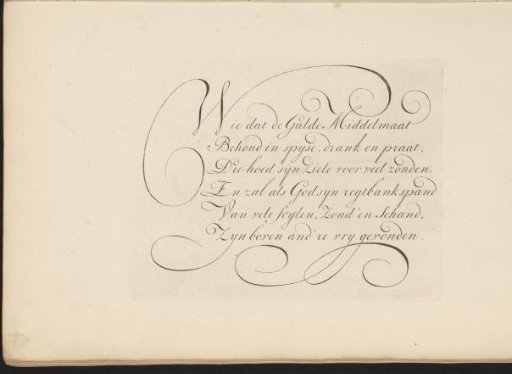 Wie dat de Gulde Middelmaat
Behoud in spyse, drank en praat,
Die hoed syn Ziele voor veel zonden,
En zal als God syn regtbank spand
Van vele feylen, Zond' en Schand,
Zyn boven and're vry gevonden.